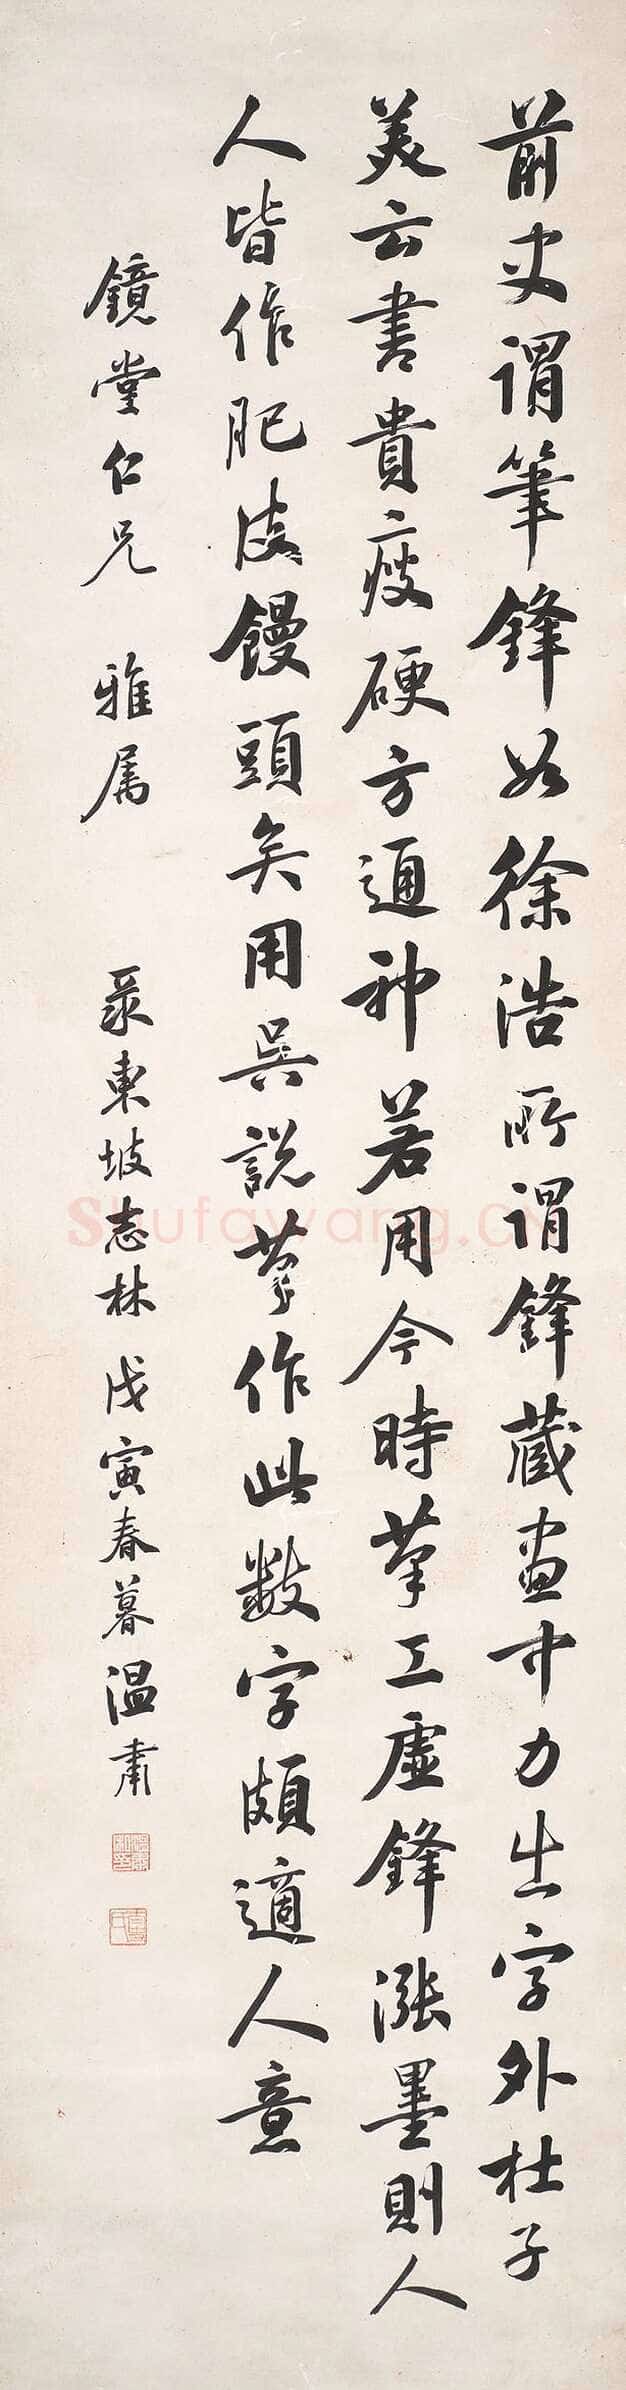 前史謂筆鋒如徐浩所謂鋒藏畫中力出字外杜子
美云書貴瘦硬方通神若用今時筆工虛鋒漲墨則人
人皆作肥皮饅頭矣用吳說筆作此數字頗適人意
鏡堂仁兄 雅属 录東坡志林 戊寅春暮温肅
Shufawang.CN